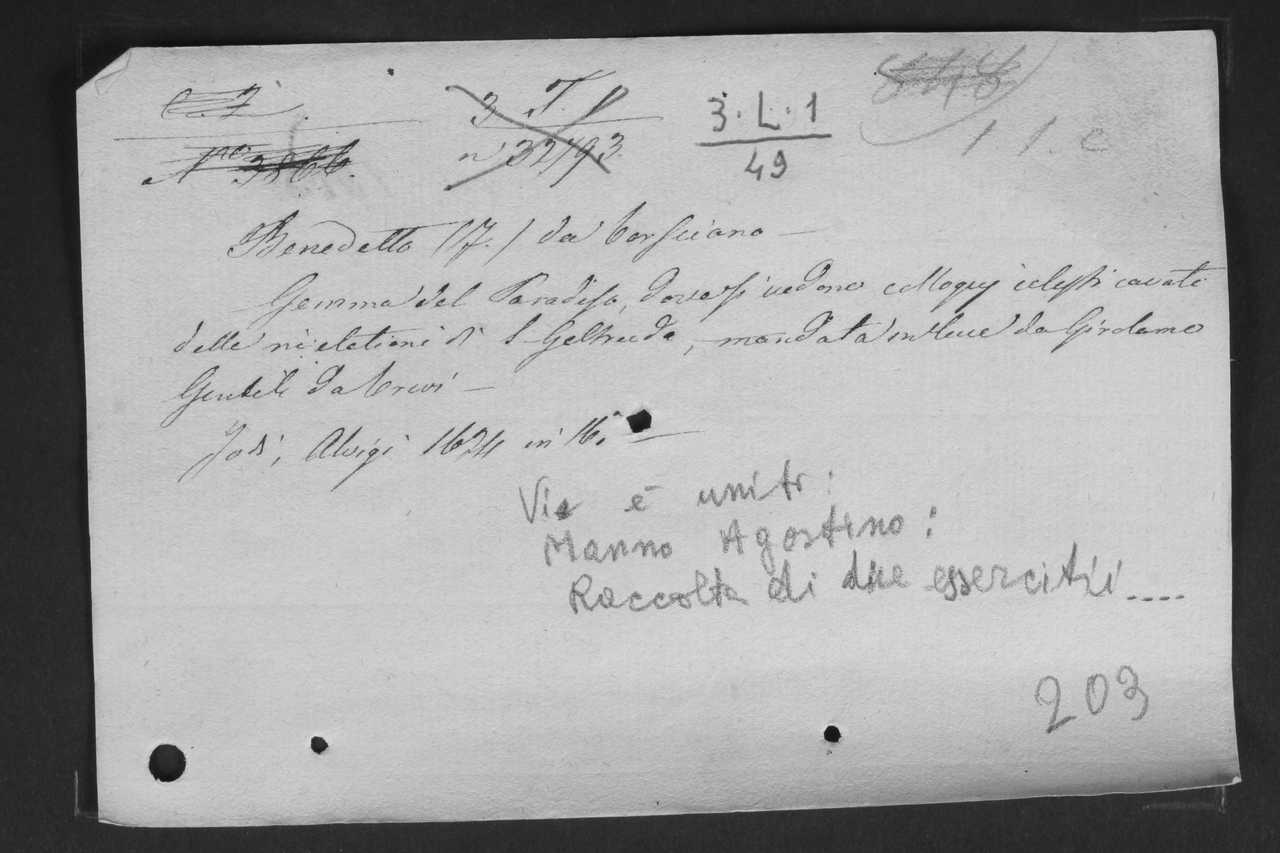 3. T. 8
n° 32193
3. L. 1
49
848
N.ro 3866.
Benedetto (F.) da Corsciano —
Gemma del Paradiso, dove si vedono colloquj celesti cavati
delle rivelationi di S. Geltruda, mandata in luce da Girolamo
Gentili da Trevi —
Jesi, Alvigi 1624 in 16.° —
Vi è unito:
Manno Agostino:
Raccolta di due essercitii ....
203